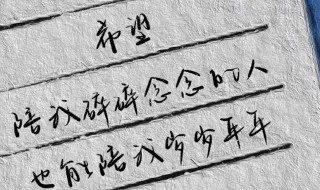 希望
陪我碎碎念念的人
也能陪我岁岁年年